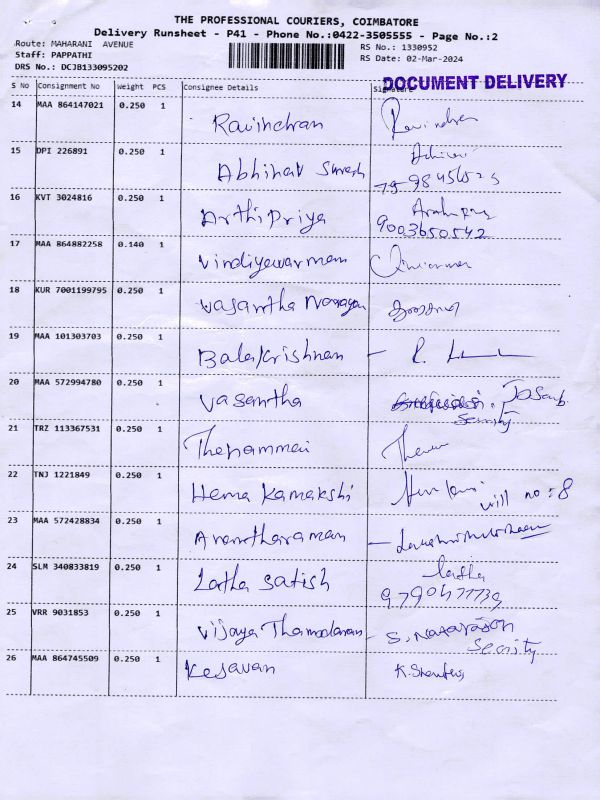 THE PROFESSIONAL COURIERS, COIMBATORE
Delivery Runsheet - P41 - Phone No.:0422-3505555 - Page No.:2
Route: MAHARANI AVENUE RS No.: 1330952
Staff: PAPPATHI RS Date: 02-Mar-2024
DRS No.: DCJB133095202
DOCUMENT DELIVERY
S No Consignment No Weight PCS Consignee Details Signature
14 MAA 864147021 0.250 1 Ravindran Ravindran
15 DPI 226891 0.250 1 Abhinav Suresh
16 KVT 3024816 0.250 1 Arthi Priya
9003650542
17 MAA 864882258 0.140 1 Vindiyavarman
18 KUR 7001199795 0.250 1 Vasantha Narayan
19 MAA 101303703 0.250 1 Balakrishnan - R.
20 MAA 572994780 0.250 1 Vasantha
Security
21 TRZ 113367531 0.250 1 Thenammai
22 TNJ 1221849 0.250 1 Hema Kamakshi
will no: 8
23 MAA 572428834 0.250 1 Anantharaman -
24 SLM 340833819 0.250 1 Latha Satish latha
25 VRR 9031853 0.250 1 Vijaya Thamodaran - S. Natarajan
Secrity
26 MAA 864745509 0.250 1 Kesavan